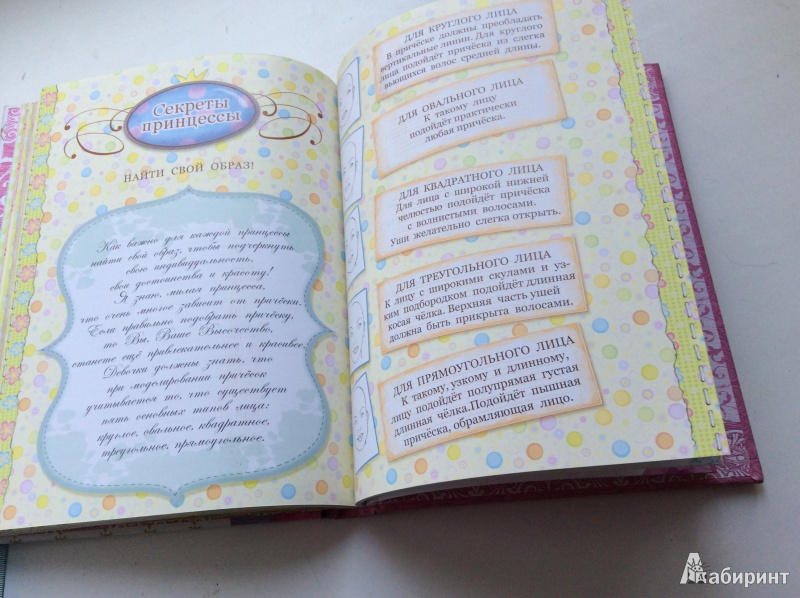 Секреты
принцессы
НАЙТИ СВОЙ ОБРАЗ!
Как важно для каждой принцессы
найти свой образ, чтобы подчеркнуть
свою индивидуальность,
свои достоинства и красоту!
Я знаю, милая принцесса,
что очень многое зависит от причёски.
Если правильно подобрать причёску,
то Вы, Ваше Высочество,
станете ещё привлекательнее и красивее.
Девочки должны знать, что
при моделировании причёсок
учитывается то, что существует
пять основных типов лица:
круглое, овальное, квадратное,
треугольное, прямоугольное.
ДЛЯ КРУГЛОГО ЛИЦА
В причёске должны преобладать
вертикальные линии. Для круглого
лица подойдёт причёска из слегка
вьющихся волос средней длины.
ДЛЯ ОВАЛЬНОГО ЛИЦА
К такому лицу
подойдёт практически
любая причёска.
ДЛЯ КВАДРАТНОГО ЛИЦА
Для лица с широкой нижней
челюстью подойдёт причёска
с волнистыми волосами.
Уши желательно слегка открыть.
ДЛЯ ТРЕУГОЛЬНОГО ЛИЦА
К лицу с широкими скулами и уз-
ким подбородком подойдёт длинная
косая чёлка. Верхняя часть ушей
должна быть прикрыта волосами.
ДЛЯ ПРЯМОУГОЛЬНОГО ЛИЦА
К такому, узкому и длинному,
лицу подойдёт полупрямая густая
длинная чёлка.Подойдёт пышная
причёска, обрамляющая лицо.
Лабиринт